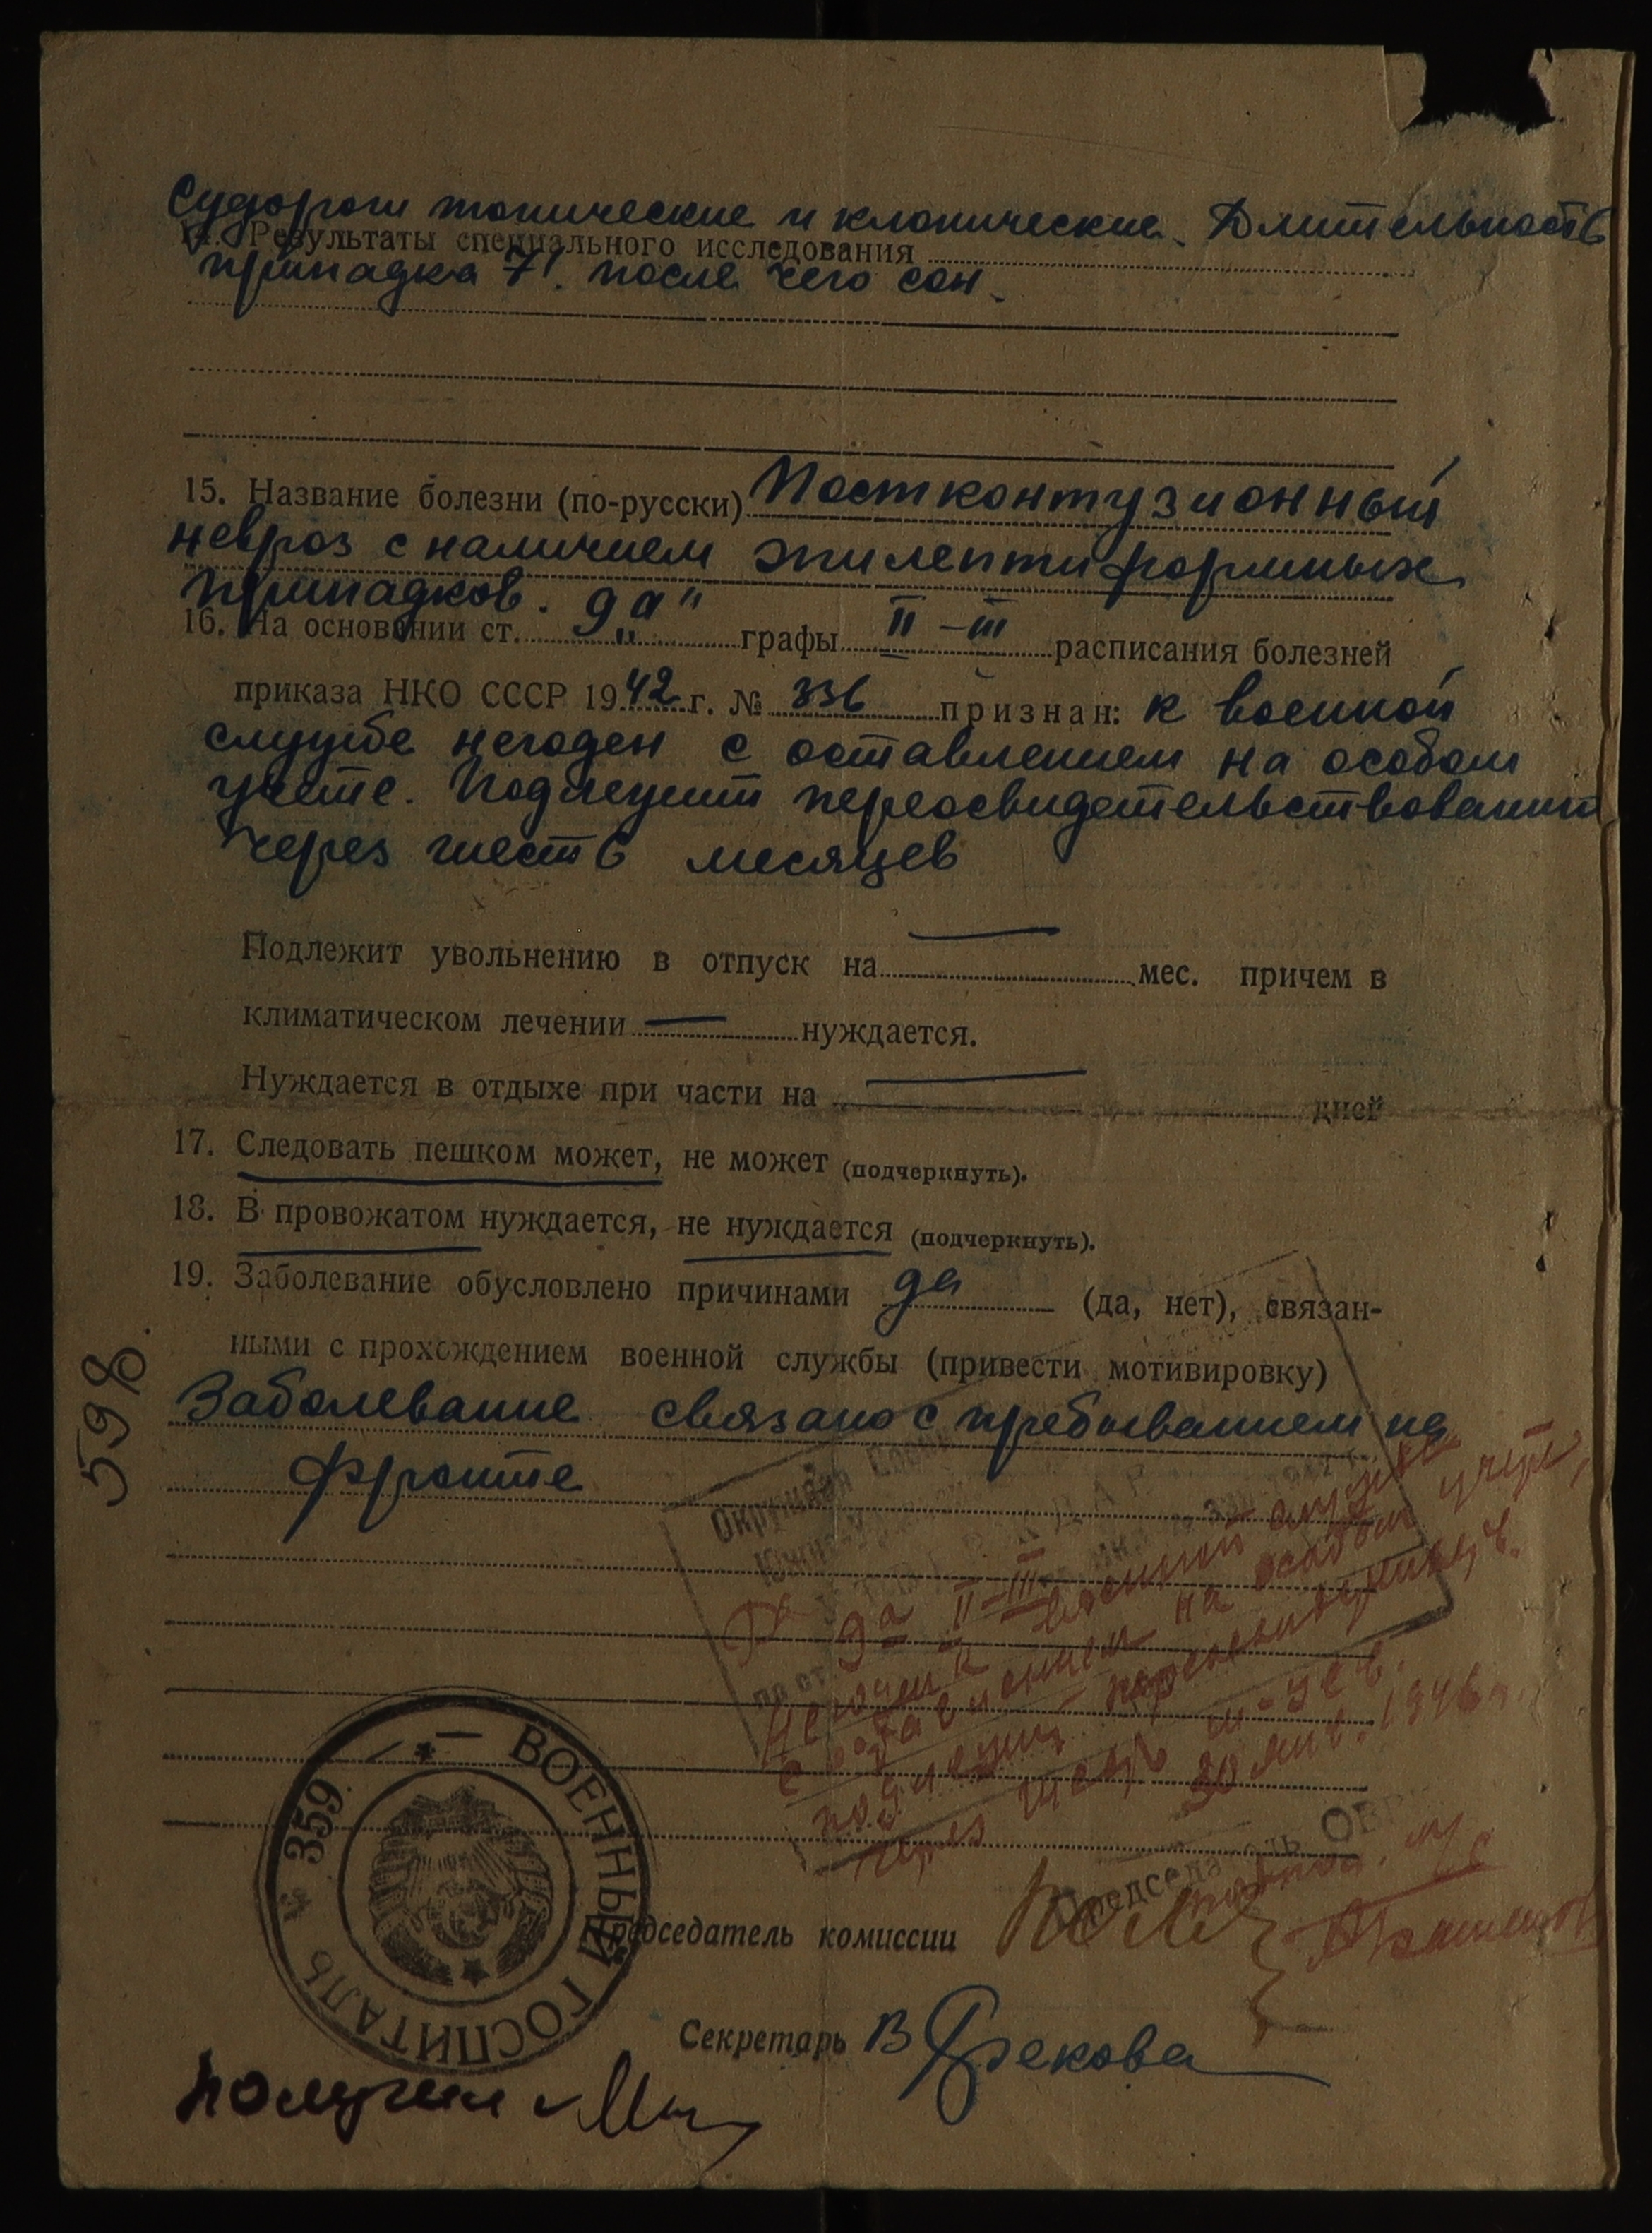 Судороги тонические и клонические. Длительность
14. Результаты специального исследования
припадка 7'. после чего сон.
15. Название болезни (по-русски) Постконтузионный
невроз с наличием эпилептиформных
припадков.
16. На основании ст. 9 „а" графы II – III расписания болезней
приказа НКО СССР 1942 г. № 336 признан: к военной
службе негоден с оставлением на особом
учете. Подлежит переосвидетельствованию
через шесть месяцев
Подлежит увольнению в отпуск на — мес. причем в
климатическом лечении — нуждается.
Нуждается в отдыхе при части на — дней
17. Следовать пешком может, не может (подчеркнуть).
18. В провожатом нуждается, не нуждается (подчеркнуть).
19. Заболевание обусловлено причинами да (да, нет), связан-
ными с прохождением военной службы (привести мотивировку)
Заболевание связано с пребыванием на
фронте
598.
Окружная
по ст. 9а II–III
негоден к военной службе
с оставлением на особом учете,
подлежит переосвид
через шесть м-цев.
30 янв. 1946 г.
Председатель ОВ
ВОЕННЫЙ ГОСПИТАЛЬ № 359
Председатель комиссии
Секретарь В Грекова
получил